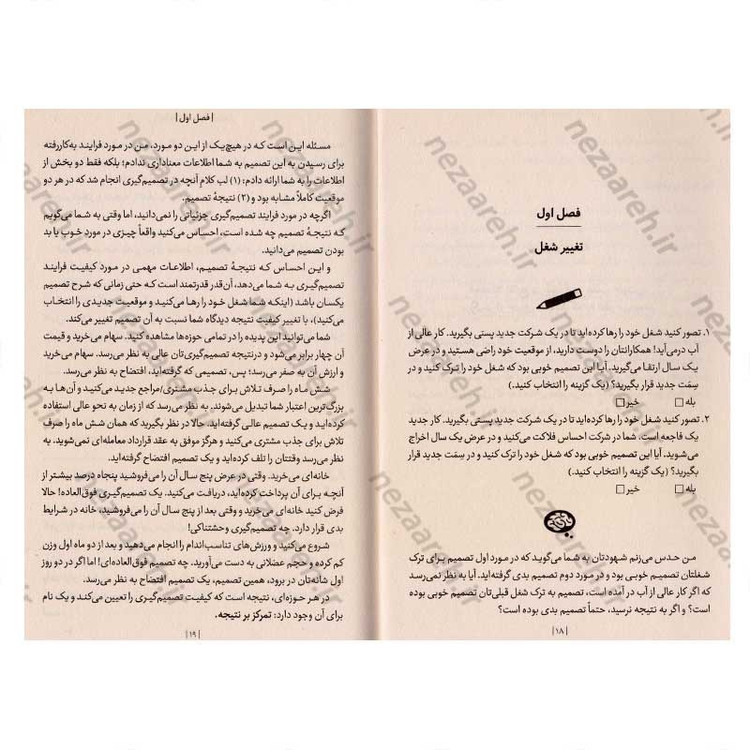 فصل اول
تغییر شغل
۱. تصور کنید شغل خود را رها کرده‌اید تا در یک شرکت جدید پستی بگیرید. کار عالی از
آب درمی‌آید! همکارانتان را دوست دارید، از موقعیت خود راضی هستید و در عرض
یک سال ارتقا می‌گیرید. آیا این تصمیم خوبی بود که شغل خود را ترک کنید و در
سِمَت جدید قرار بگیرید؟ (یک گزینه را انتخاب کنید.)
بله □ خیر □
۲. تصور کنید شغل خود را رها کرده‌اید تا در یک شرکت جدید پستی بگیرید. کار جدید
یک فاجعه است. شما در شرکت احساس فلاکت می‌کنید و در عرض یک سال اخراج
می‌شوید. آیا این تصمیم خوبی بود که شغل خود را ترک کنید و در سِمَت جدید قرار
بگیرید؟ (یک گزینه را انتخاب کنید.)
بله □ خیر □
من حدس می‌زنم شهودتان به شما می‌گوید که در مورد اول تصمیم برای ترک
شغلتان تصمیم خوبی بود و در مورد دوم تصمیم بدی گرفته‌اید. آیا به نظر نمی‌رسد
که اگر کار عالی از آب در آمده است، تصمیم به ترک شغل قبلی‌تان تصمیم خوبی بوده
است؟ و اگر به نتیجه نرسید، حتماً تصمیم بدی بوده است؟
|۱۸|
|فصل اول|
مسئله این است که در هیچ‌یک از این دو مورد، من در مورد فرایند به‌کاررفته
برای رسیدن به این تصمیم به شما اطلاعات معناداری ندادم؛ بلکه فقط دو بخش از
اطلاعات را به شما ارائه دادم: (۱) لب کلام آنچه در تصمیم‌گیری انجام شد که در هر دو
موقعیت کاملاً مشابه بود و (۲) نتیجهٔ تصمیم.
اگرچه در مورد فرایند تصمیم‌گیری جزئیاتی را نمی‌دانید، اما وقتی به شما می‌گویم
که نتیجهٔ تصمیم چه شده است، احساس می‌کنید واقعاً چیزی در مورد خوب یا بد
بودن تصمیم می‌دانید.
و این احساس که نتیجهٔ تصمیم، اطلاعات مهمی در مورد کیفیت فرایند
تصمیم‌گیری به شما می‌دهد، آن‌قدر قدرتمند است که حتی زمانی که شرح تصمیم
یکسان باشد (اینکه شما شغل خود را رها می‌کنید و موقعیت جدیدی را انتخاب
می‌کنید)، با تغییر کیفیت نتیجه دیدگاه شما نسبت به آن تصمیم تغییر می‌کند.
شما می‌توانید این پدیده را در تمامی حوزه‌ها مشاهده کنید. سهام می‌خرید و قیمت
آن چهار برابر می‌شود و درنتیجه تصمیم‌گیری‌تان عالی به نظر می‌رسد. سهام می‌خرید
و ارزش آن به صفر می‌رسد؛ پس، تصمیمی که گرفته‌اید، افتضاح به نظر می‌رسد.
شش ماه را صرف تلاش برای جذب مشتری/مراجع جدید می‌کنید و آن‌ها به
بزرگ‌ترین اعتبار شما تبدیل می‌شوند. به نظر می‌رسد که از زمان به نحو عالی استفاده
کرده‌اید و یک تصمیم عالی گرفته‌اید. حالا در نظر بگیرید که همان شش ماه را صرف
تلاش برای جذب مشتری می‌کنید و هرگز موفق به عقد قرارداد معامله‌ای نمی‌شوید. به
نظر می‌رسد وقتتان را تلف کرده‌اید و یک تصمیم افتضاح گرفته‌اید.
خانه‌ای می‌خرید. وقتی در عرض پنج سال آن را می‌فروشید پنجاه درصد بیشتر از
آنچه برای آن پرداخت کرده‌اید، دریافت می‌کنید. یک تصمیم‌گیری فوق‌العاده! حالا
فرض کنید خانه‌ای می‌خرید و وقتی بعد از پنج سال آن را می‌فروشید، خانه در شرایط
بدی قرار دارد. چه تصمیم‌گیری وحشتناکی!
شروع می‌کنید و ورزش‌های تناسب‌اندام را انجام می‌دهید و بعد از دو ماه اول وزن
کم کرده و حجم عضلانی به دست می‌آورید. چه تصمیم فوق‌العاده‌ای! اما اگر در دو روز
اول شانه‌تان در برود، همین تصمیم، یک تصمیم افتضاح به نظر می‌رسد.
در هر حوزه‌ای، نتیجه است که کیفیت تصمیم‌گیری را تعیین می‌کند و یک نام
برای آن وجود دارد: تمرکز بر نتیجه.
|۱۹|
nezaareh.ir